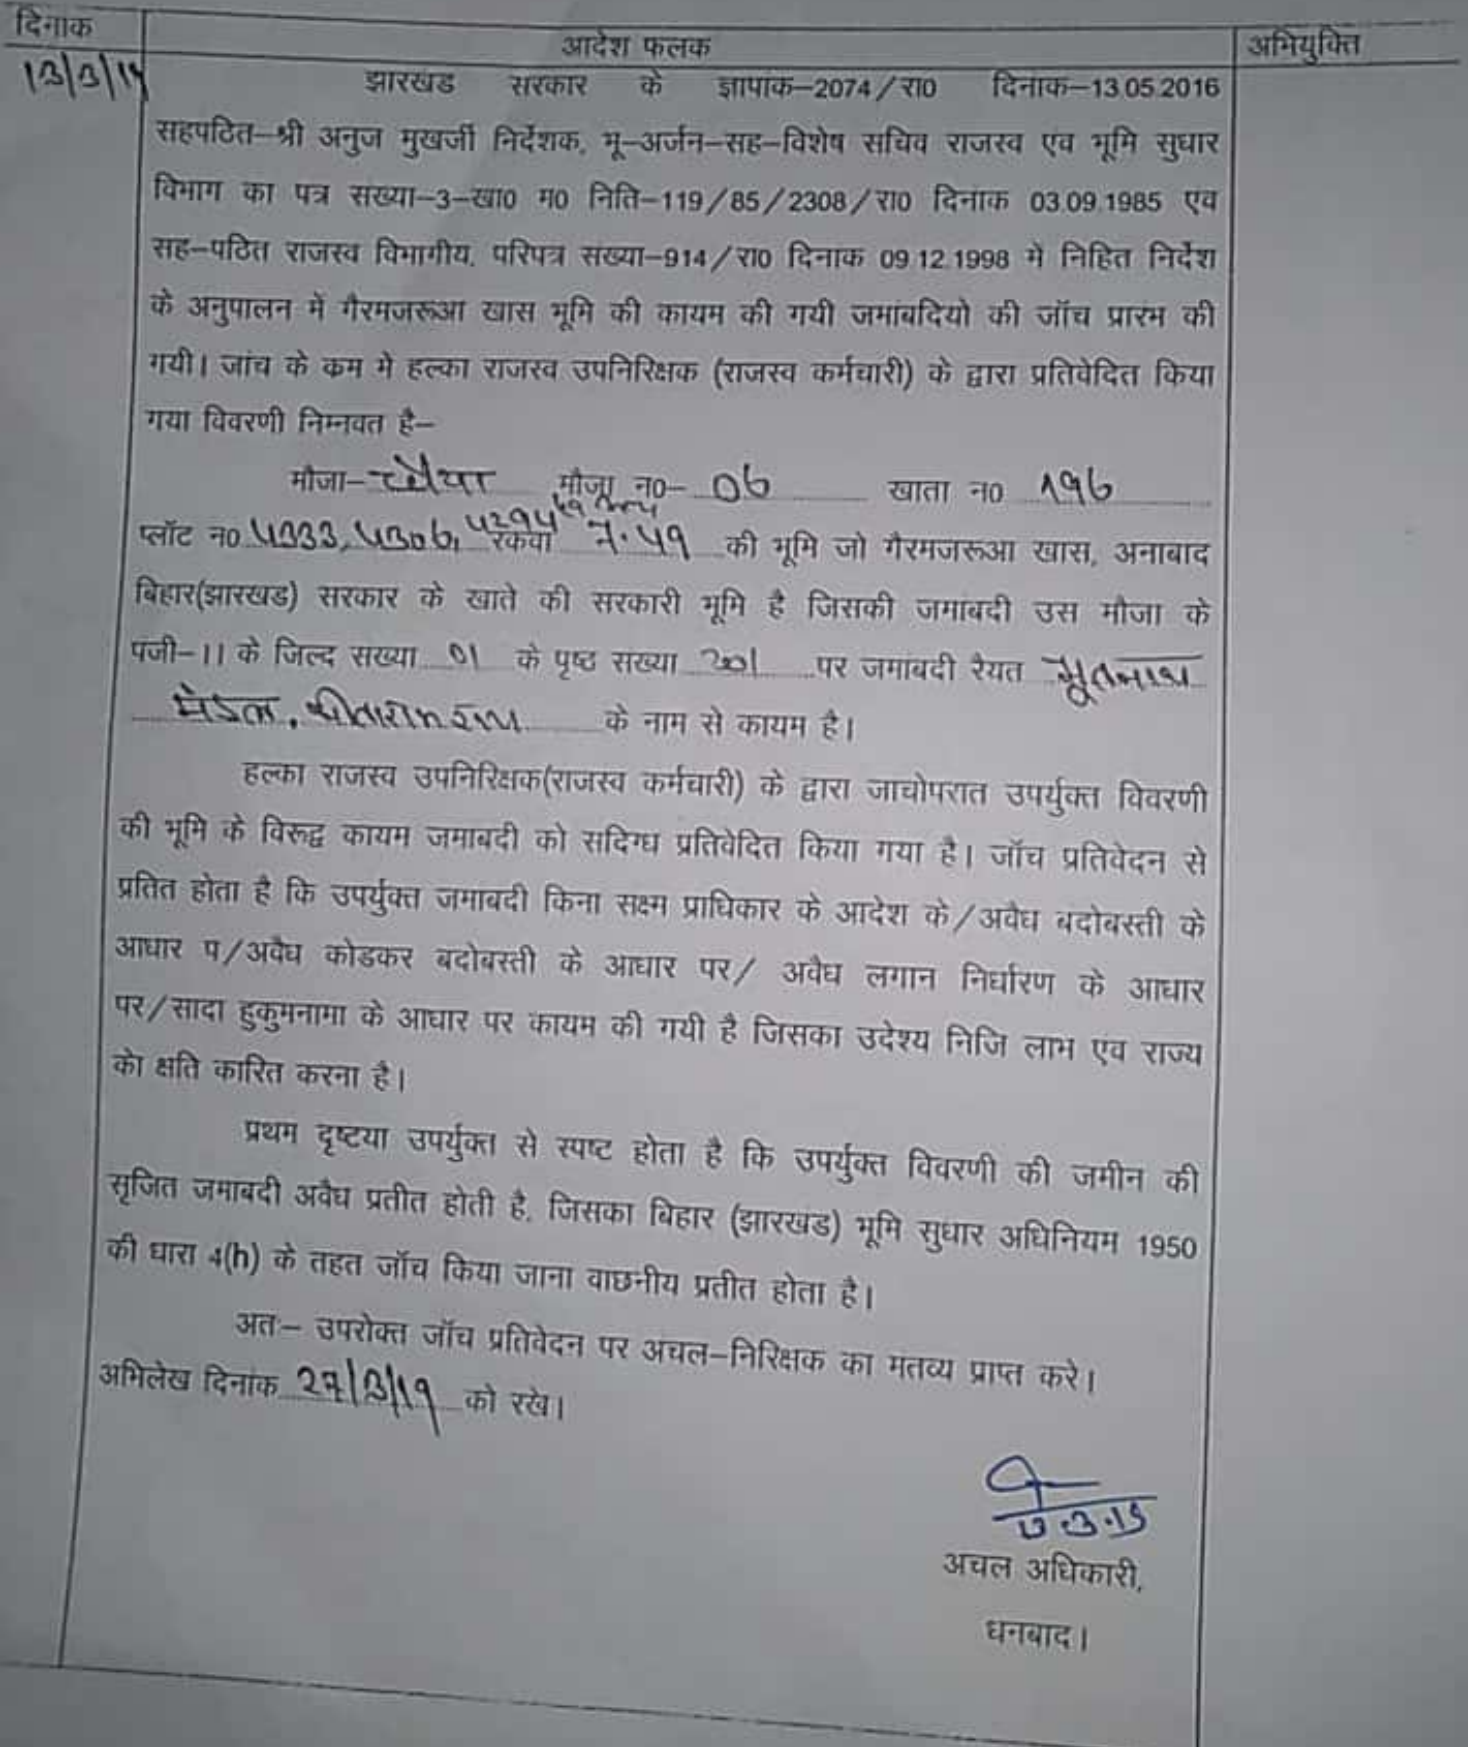 दिनाक
आदेश फलक
अभियुक्ति
13/3/19
झारखंड सरकार के ज्ञापांक–2074/रा0 दिनाक–13.05.2016
सहपठित–श्री अनुज मुखर्जी निर्देशक, भू–अर्जन–सह–विशेष सचिव राजस्व एंव भूमि सुधार
विभाग का पत्र संख्या–3–खा0 म0 निति–119/85/2308/रा0 दिनांक 03.09.1985 एंव
सह–पठित राजस्व विभागीय. परिपत्र संख्या–914/रा0 दिनाक 09.12.1998 मे निहित निर्देश
के अनुपालन में गैरमजरूआ खास भूमि की कायम की गयी जमांबदियो की जॉच प्रारंभ की
गयी। जांच के कम मे हल्का राजस्व उपनिरिक्षक (राजस्व कर्मचारी) के द्वारा प्रतिवेदित किया
गया विवरणी निम्नवत है–
मौजा– मौजा न0– 06 खाता न0 196
प्लॉट न0 4333, 4306, 4294 रकवा 7.49 की भूमि जो गैरमजरूआ खास, अनाबाद
बिहार(झारखंड) सरकार के खाते की सरकारी भूमि है जिसकी जमाबंदी उस मौजा के
पंजी–11 के जिल्द संख्या 01 के पृष्ठ संख्या 201 पर जमाबंदी रैयत भूतनाथ
मंडल, के नाम से कायम है।
हल्का राजस्व उपनिरिक्षक(राजस्व कर्मचारी) के द्वारा जाचोपरात उपर्युक्त विवरणी
की भूमि के विरूद्व कायम जमाबंदी को सदिग्ध प्रतिवेदित किया गया है। जॉच प्रतिवेदन से
प्रतित होता है कि उपर्युक्त जमाबंदी किना सक्ष्म प्राधिकार के आदेश के/अवैध बदोबस्ती के
आधार प/अवैध कोडकर बदोबस्ती के आधार पर/ अवैध लगान निर्धारण के आधार
पर/सादा हुकुमनामा के आधार पर कायम की गयी है जिसका उदेश्य निजि लाभ एंव राज्य
को क्षति कारित करना है।
प्रथम दृष्टया उपर्युक्त से स्पष्ट होता है कि उपर्युक्त विवरणी की जमीन की
सृजित जमाबदी अवैध प्रतीत होती है, जिसका बिहार (झारखंड) भूमि सुधार अधिनियम 1950
की धारा 4(h) के तहत जॉच किया जाना वाछनीय प्रतीत होता है।
अतः– उपरोक्त जॉच प्रतिवेदन पर अचल–निरिक्षक का मतव्य प्राप्त करे।
अभिलेख दिनांक 27/3/19 को रखे।
अचल अधिकारी,
धनबाद।